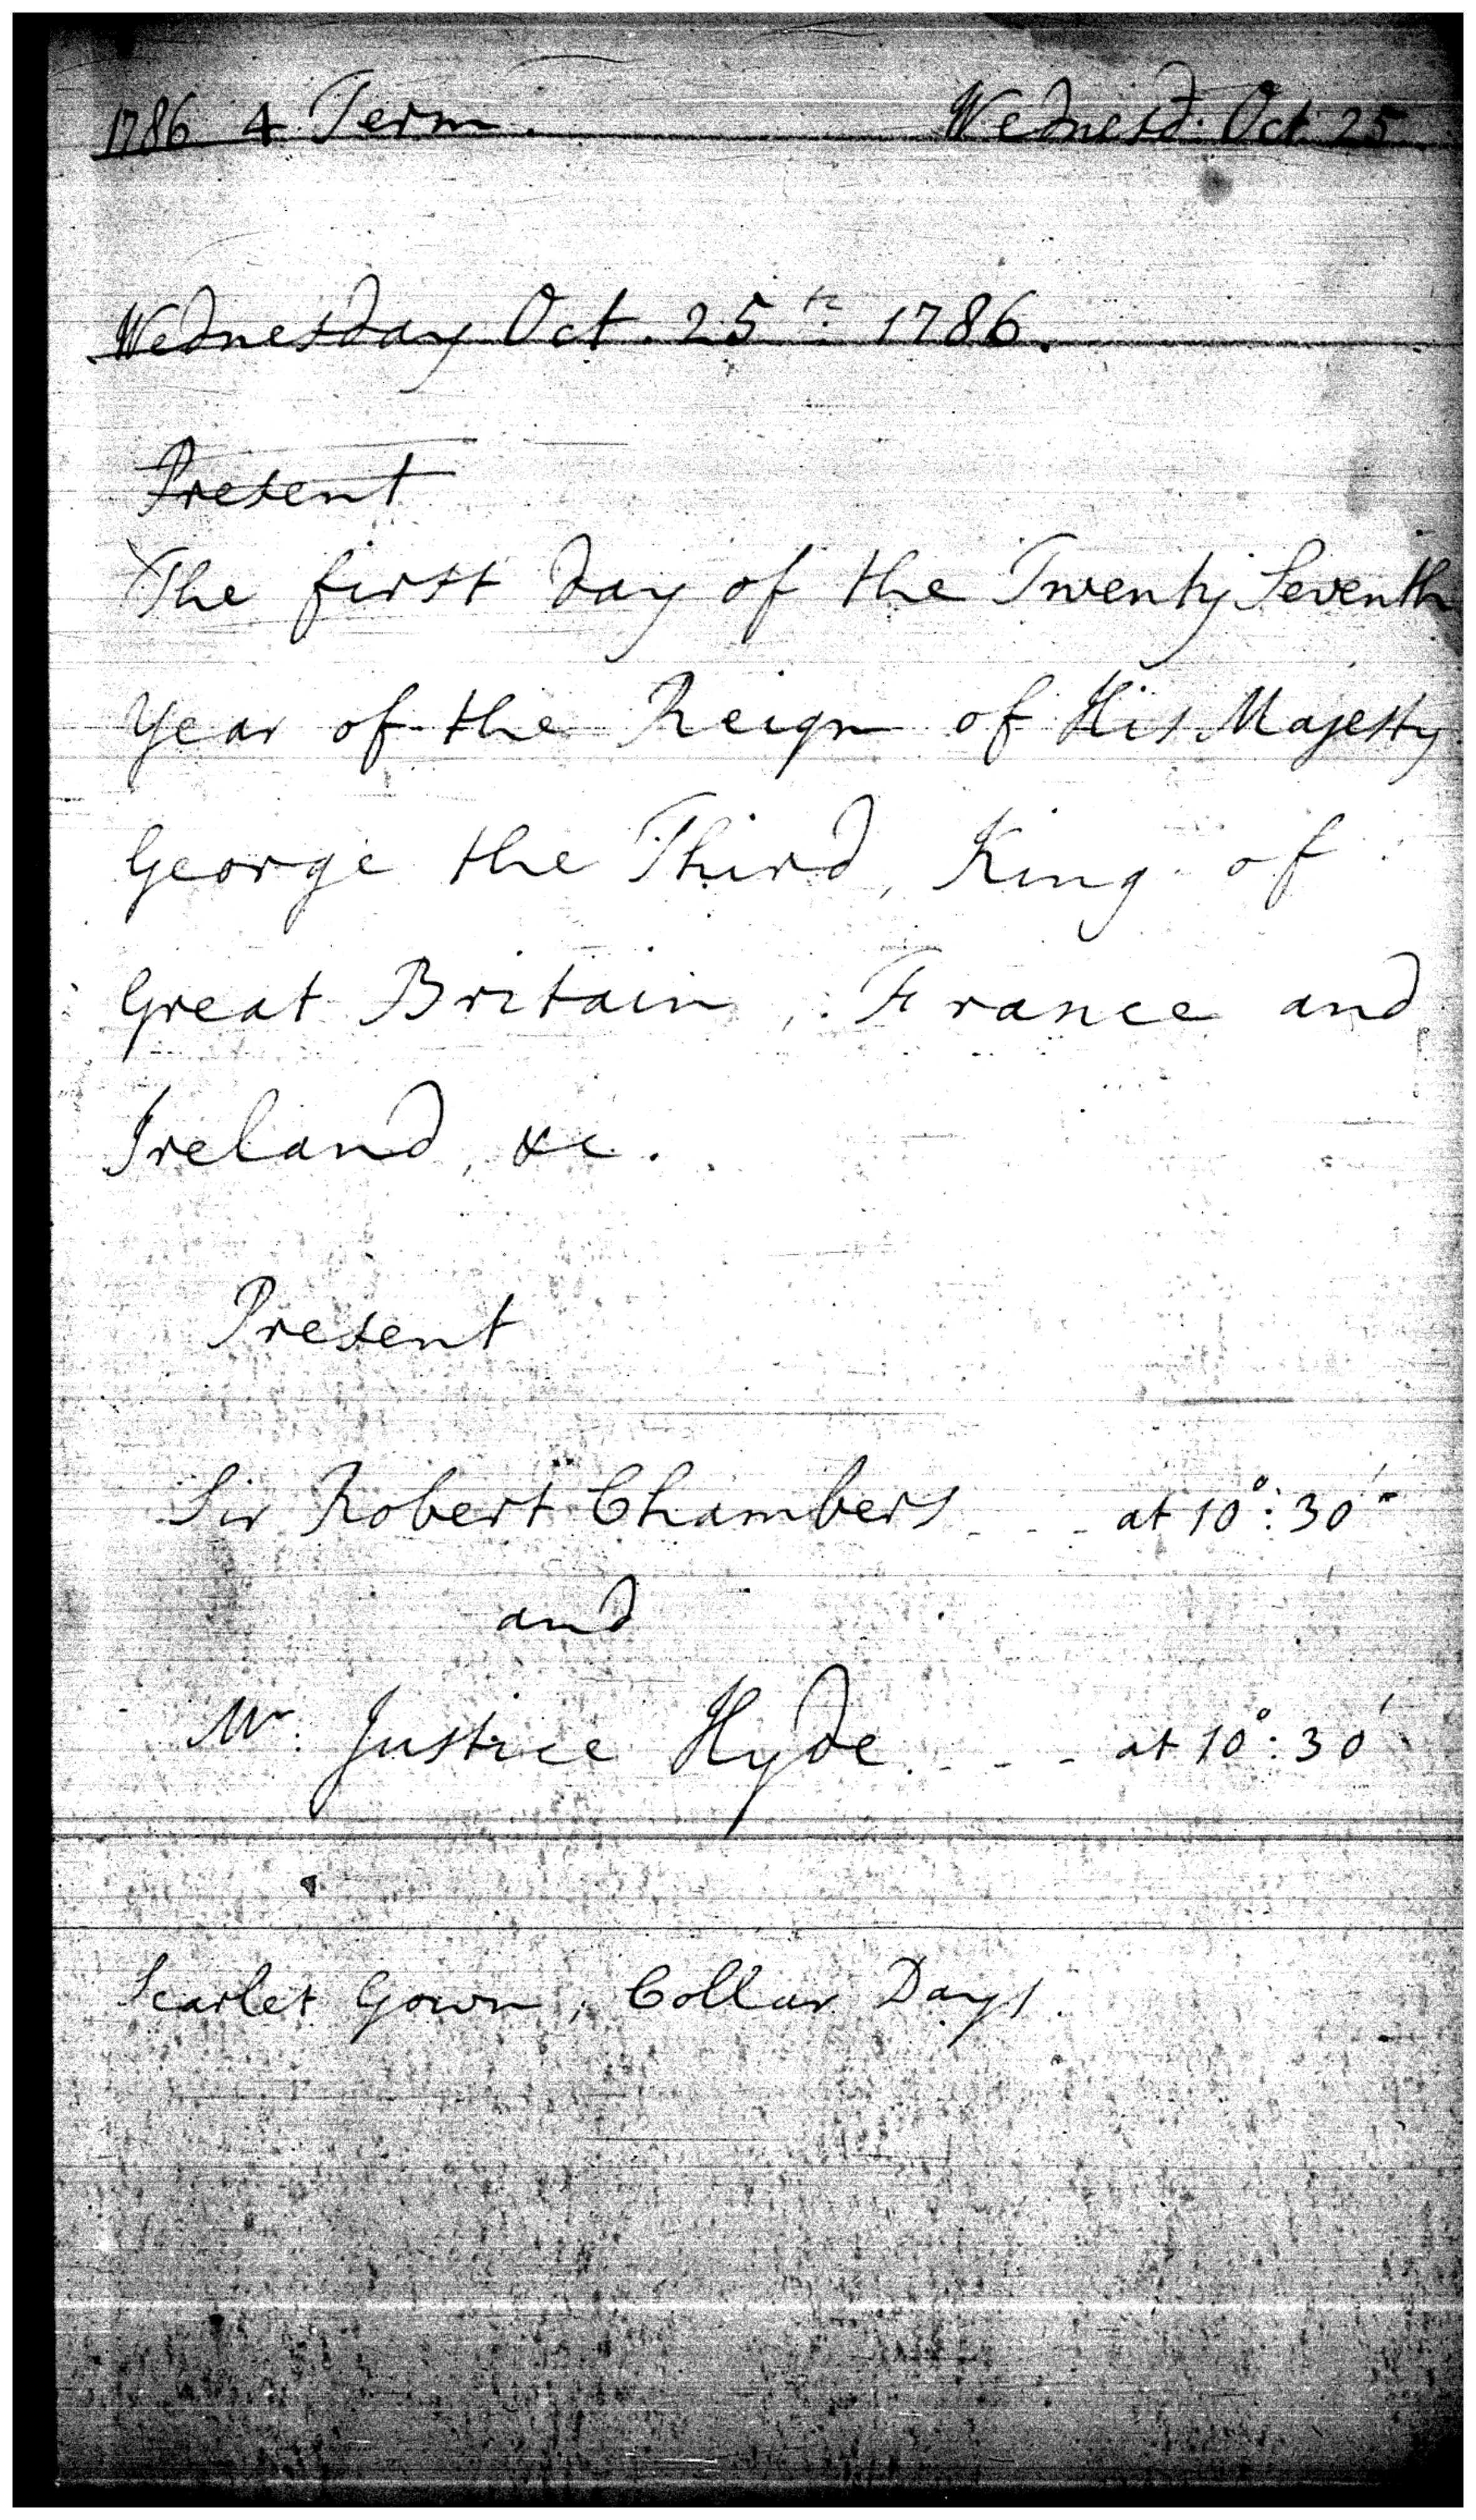 1786 4 Term. Wednesd. Oct 25
Wednesday Oct. 25th 1786.
Present
The first Day of the Twenty Seventh
Year of the Reign of His Majesty
George the Third, King of
Great Britain, France and
Ireland, &c.
Present
Sir Robert Chambers - - - at 10°: 30'
and
Mr. Justice Hyde. - - - at 10°: 30'
Scarlet Gown, Collar Days.